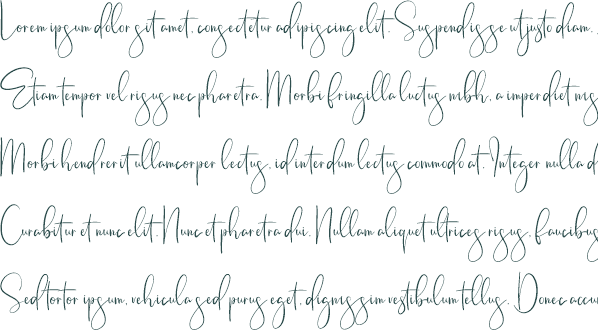 Lorem ipsum dolor sit amet, consectetur adipiscing elit. Suspendisse ut justo diam.
Etiam tempor vel risus nec pharetra. Morbi fringilla luctus nibh, a imperdiet nis
Morbi hendrerit ullamcorper lectus, id interdum lectus commodo at. Integer nulla d
Curabitur et nunc elit. Nunc et pharetra dui. Nullam aliquet ultrices risus, faucibus
Sed tortor ipsum, vehicula sed purus eget, dignissim vestibulum tellus. Donec accum